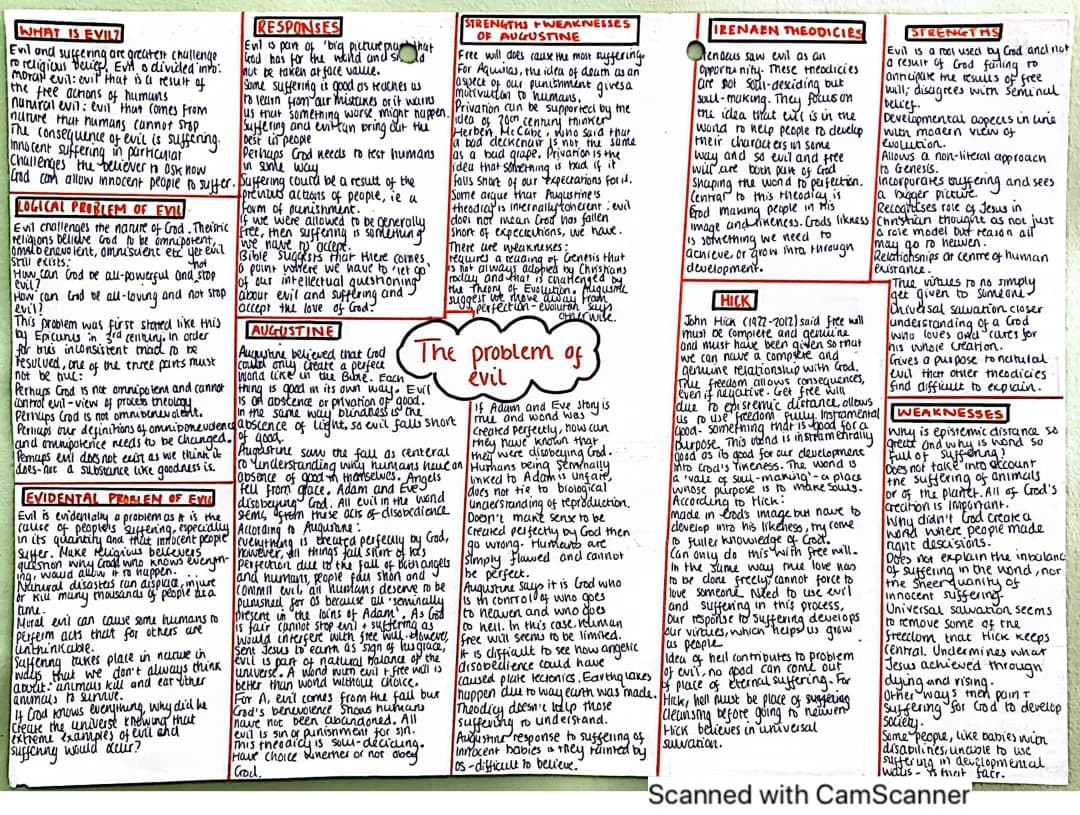 WHAT IS EVIL?
Evil and suffering are greatest challenge
to religious belief. Evil is divided into:
moral evil: evil that is a result of
the free actions of humans
natural evil: evil that comes from
nature that humans cannot stop
The consequence of evil is suffering.
Innocent suffering in particular
challenges the believer to ask how
God can allow innocent people to suffer.
LOGICAL PROBLEM OF EVIL
Evil challenges the nature of God. Theistic
religions believe God to be omnipotent,
omnibenevolent, omniscient etc yet evil
still exists:
How can God be all-powerful and not stop
evil?
How can God be all-loving and not stop
evil?
This problem was first stated like this
by Epicurus in 3rd century. In order
for this inconsistent triad to be
resolved, one of the three parts must
not be true:
Perhaps God is not omnipotent and cannot
control evil - view of process theology
Perhaps God is not omnibenevolent.
Perhaps our definitions of omnibenevolence
and omnipotence needs to be changed.
Perhaps evil does not exist as we think it
does - not a substance like goodness is.
EVIDENTAL PROBLEM OF EVIL
Evil is evidentially a problem as it is the
cause of people's suffering, especially
in its quantity and that innocent people
suffer. Make religious believers
question why God, who knows everyth-
ing, would allow it to happen.
Natural disasters can displace, injure
or kill many thousands of people at a
time.
Moral evil can cause some humans to
perform acts that for others are
unthinkable.
Suffering takes place in nature in
ways that we don't always think
about - animals kill and eat other
animals to survive.
If God knows everything, why did he
create the universe knowing that
extreme examples of evil and
suffering would occur?
RESPONSES
Evil is part of 'big picture' that
God has for the world and should
not be taken at face value.
Some suffering is good as teaches us
to learn from our mistakes or it warns
us that something worse might happen.
Suffering and evil can bring out the
best in people
Perhaps God needs to test humans
in some way
Suffering could be a result of the
previous actions of people, ie a
form of punishment.
If we were allowed to be generally
free, then suffering is something
we have to accept.
Bible suggests that there comes
a point where we have to 'let go'
of our intellectual questioning
about evil and suffering and
accept the love of God.
AUGUSTINE
Augustine believed that God
could only create a perfect
world like in the Bible. Each
thing is good in its own way. Evil
is an abscence or privation of good.
In the same way blindness is the
abscence of light, so evil falls short
of good.
Augustine saw the fall as central
to understanding why humans have an
absence of good in themselves. Angels
fell from grace. Adam and Eve
disobeying God. All evil in the world
stems from these acts of disobedience.
According to Augustine:
everything is created perfectly by God,
however, all things fall short of God's
perfection due to the fall of both angels
and humans, people fall short and
commit evil, all humans deserve to be
punished for os because all 'seminally
present in the loins of Adam'. As God
is fair cannot stop evil + suffering as
would interfere with free will. However,
sent Jesus to earth as sign of his grace,
evil is part of natural balance of the
universe. A world with evil + free will is
better than world without choice.
For A, evil comes from the fall but
God's benevolence shows humans
have not been abandoned. All
evil is sin or punishment for sin.
This theodicy is soul-deciding.
Have choice whether or not obey
God.
STRENGTHS + WEAKNESSES
OF AUGUSTINE
Free will does cause the most suffering.
For Aquinas, the idea of death as an
aspect of our punishment gives a
motivation to humans.
Privation can be supported by the
idea of 20th century thinker
Herbert McCabe, who said that
a bad deckchair is not the same
as a bad grape. Privation is the
idea that something is bad if it
falls short of our expectations for it.
Some argue that Augustine's
theodicy is internally coherent: evil
does not mean God has fallen
short of expectations, we have.
There are weaknesses:
requires a reading of Genesis that
is not always adopted by Christians
today and that is challenged by
the Theory of Evolution. Augustine
suggest we move away from
perfection - evolution says
otherwise.
The problem of
evil
If Adam and Eve story is
true and world was
created perfectly, how can
they have known that
they were disobeying God.
Humans being seminally
linked to Adam is unfair,
does not tie to biological
understanding of reproduction.
Doesn't make sense to be
created perfectly by God then
go wrong. Humans are
simply flawed and cannot
be perfect.
Augustine says it is God who
is in control of who goes
to heaven and who goes
to hell. In this case, human
free will seems to be limited.
It is difficult to see how angelic
disobedience could have
caused plate tectonics. Earthquakes
happen due to way earth was made.
Theodicy doesn't help those
suffering to understand.
Augustine response to suffering of
innocent babies is they tainted by
os - difficult to believe.
IRENAEN THEODICIES
Irenaeus saw evil as an
opportunity. These theodicies
are not soul-deciding but
soul-making. They focus on
the idea that evil is in the
world to help people to develop
their characters in some
way and so evil and free
will are both part of God
shaping the world to perfection.
Central to this theodicy is
God making people in His
image and likeness. Gods likeness
is something we need to
achieve, or grow into through
development.
HICK
John Hick (1922-2012) said free will
must be complete and genuine
and must have been given so that
we can have a complete and
genuine relationship with God.
True freedom allows consequences,
even if negative. Get free will
due to epistemic distance, allows
us to use freedom fully. Instrumental
good - something that is good for a
purpose. This world is instrumentally
good as its good for our development
into God's likeness. The world is
a 'vale of soul-making' - a place
whose purpose is to make souls.
According to Hick:
made in God's image but have to
develop into his likeness, try come
to fuller knowledge of God.
Can only do this with free will.
In the same way true love has
to be done freely, cannot force to
love someone. Need to use evil
and suffering in this process,
our response to suffering develops
our virtues, which helps us grow
as people
Idea of hell contributes to problem
of evil, no good can come out
of place of eternal suffering. For
Hick, hell must be place of suffering
cleansing before going to heaven
Hick believes in universal
salvation.
STRENGTHS
Evil is a tool used by God and not
a result of God failing to
anticipate the results of free
will; disagrees with seminal
belief.
Developmental aspects in line
with modern view of
evolution.
Allows a non-literal approach
to Genesis.
Incorporates suffering and sees
a bigger picture.
Recognises role of Jesus in
Christian thought as not just
a role model but reason all
may go to heaven.
Relationships at centre of human
existance.
True virtues to no simply
get given to someone
Universal salvation closer
understanding of a God
who loves and cares for
his whole creation.
Gives a purpose to natural
evil that other theodicies
find difficult to explain.
WEAKNESSES
Why is epistemic distance so
great and why is world so
full of suffering?
Does not take into account
the suffering of animals
or of the planet. All of God's
creation is important.
Why didn't God create a
world where people made
right descisions.
Does not explain the inbalance
of suffering in the world, nor
the sheer quanity of
innocent suffering.
Universal salvation seems
to remove some of the
freedom that Hick keeps
central. Undermines what
Jesus achieved through
dying and rising.
Other ways than pain +
suffering for God to develop
society.
Some people, like babies with
disabilities, unable to use
suffering in developmental
ways - is that fair.
Scanned with CamScanner